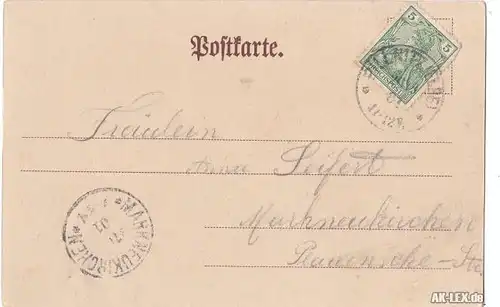 Postkarte.
5 5
Fräulein
Anna Seifert
Markneukirchen
MARKNEUKIRCHEN
AK-LEX.de